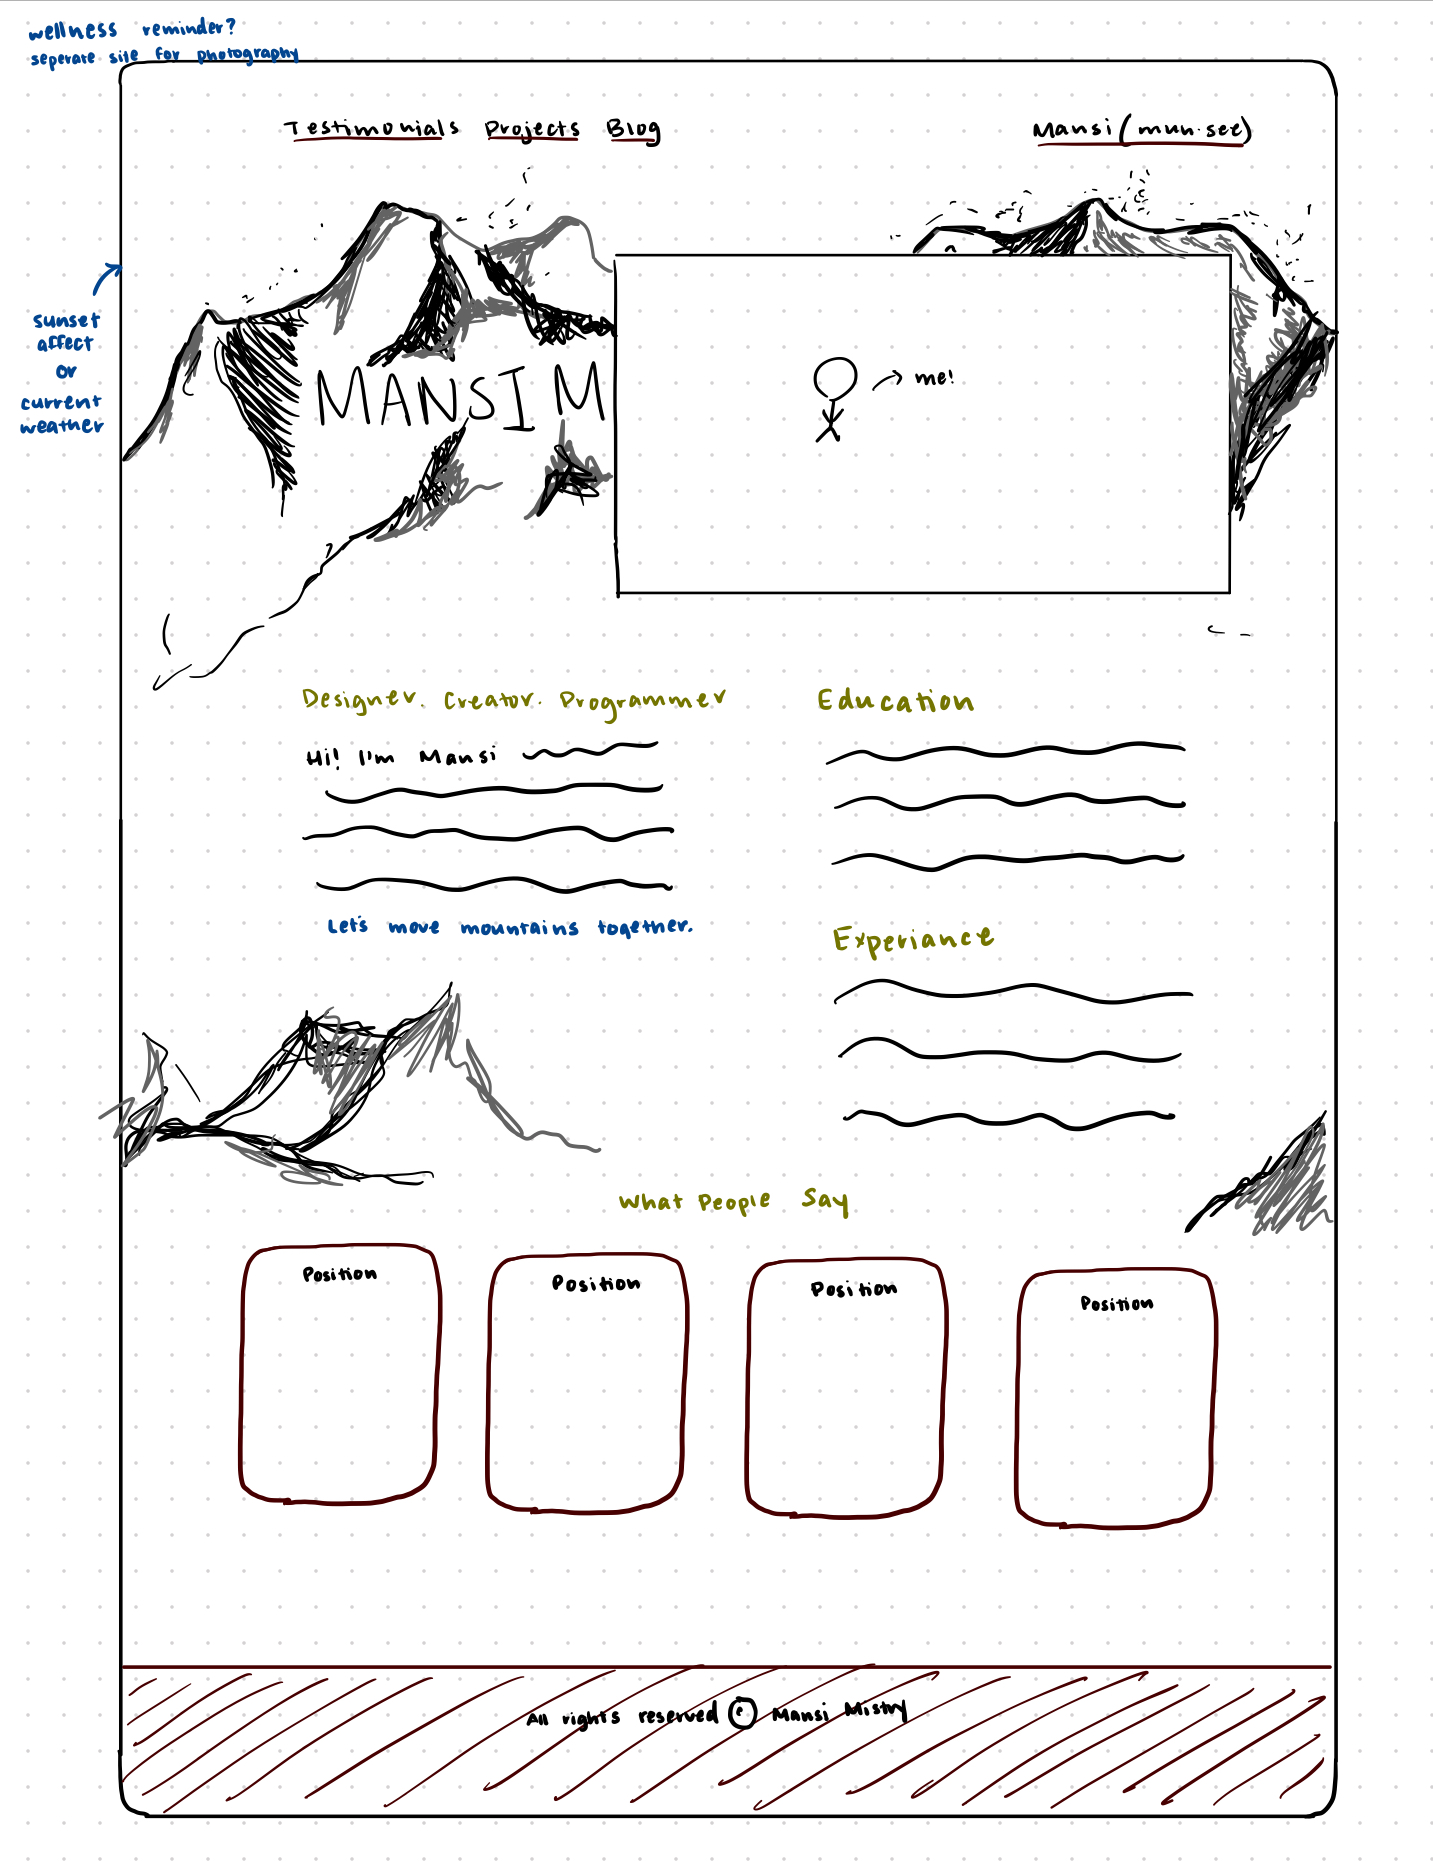 wellness reminder?
seperate site for photography
Testimonials Projects Blog
Mansi (mun·see)
sunset
affect
or
current
weather
MANSI M
me!
Designer. Creator. Programmer
Hi! I'm Mansi
Let's move mountains together.
Education
Experiance
What People Say
Position
Position
Position
Position
All rights reserved © Mansi Mistry